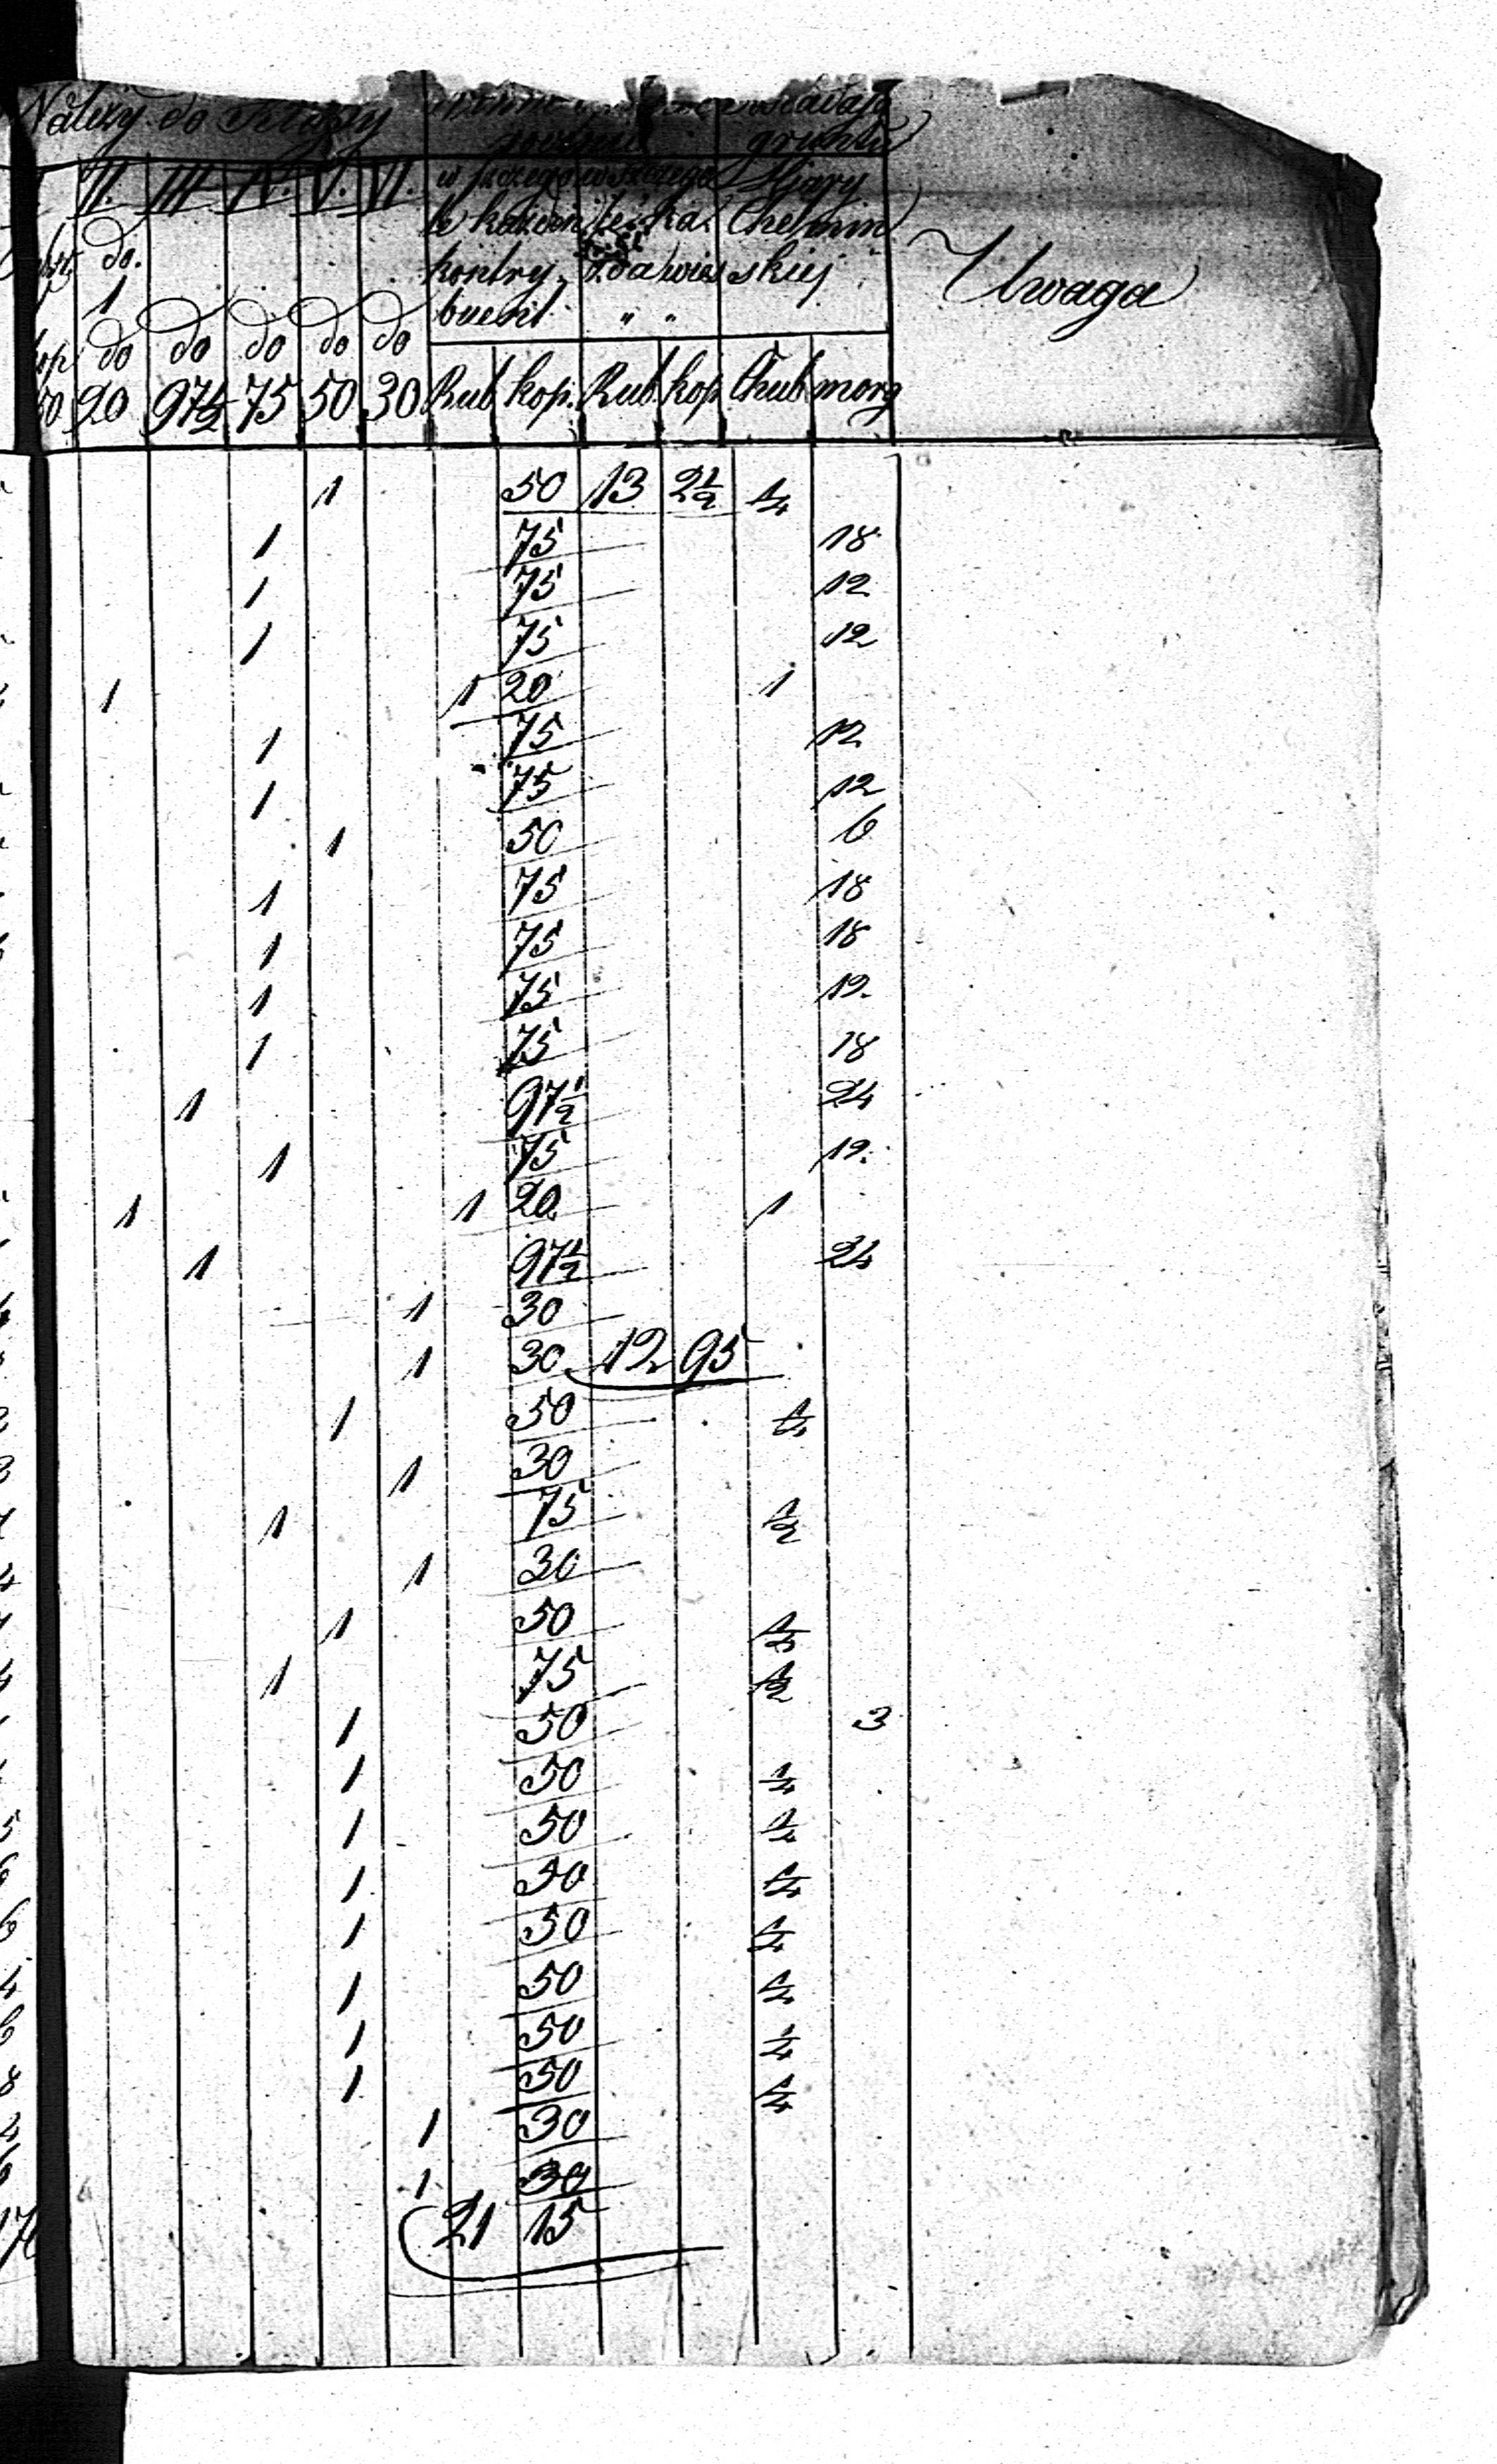 Należy do Klassy
gruntu
II. III IV. V. VI.
w szczegó w szczegó Miary
le każden le. ka. Chełmin
do.
kontry. wies skiej
1
buent " "
Uwaga
do do do do do
20 97½ 75 50 30 Rub kop. Rub kop Chub morg
1 50 13 2½ ¼
1 75 18
1 75 12
1 75 12
1 1 20 1
1 75 12
1 75 12
1 50 6
1 75 18
1 75 18
1 75 12
1 75 18
1 97½ 24
1 75 12
1 1 20 1
1 97½ 24
1 30
1 30 12 95
1 50 ¼
1 30
1 75 ½
1 30
1 50 ¼
1 75 ½
1 50 3
1 50 ¼
1 50 ¼
1 50 ¼
1 50 ¼
1 50 ¼
1 50 ¼
1 50 ¼
1 30
1 30
21 15